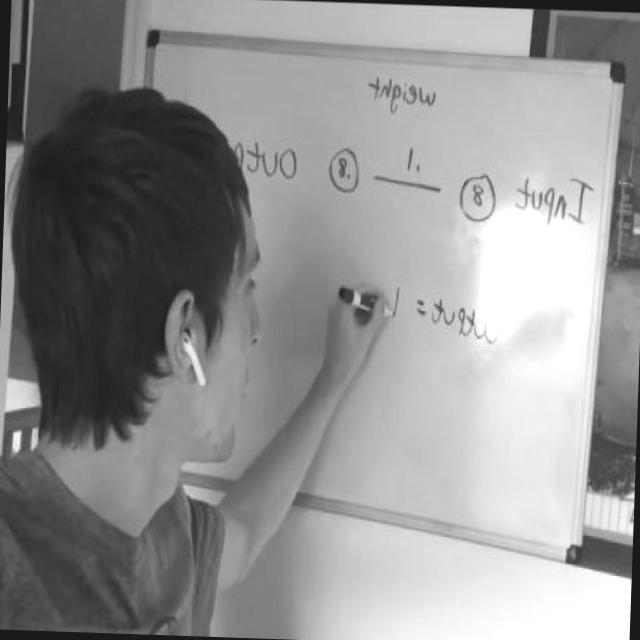 weight
Input 8 .1 .8 Outp
utput = 1